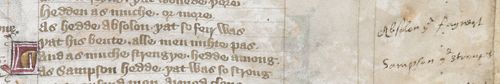 hedden as muche, or more,
as hedde Absolon, þat so feyr was
þat his beute, alle men muhte pas.
And as muche strengþe hedde among,
as Sampson hedde, þat was so strong
Absolon yᵉ fayrest
Sampson yᵉ stronge